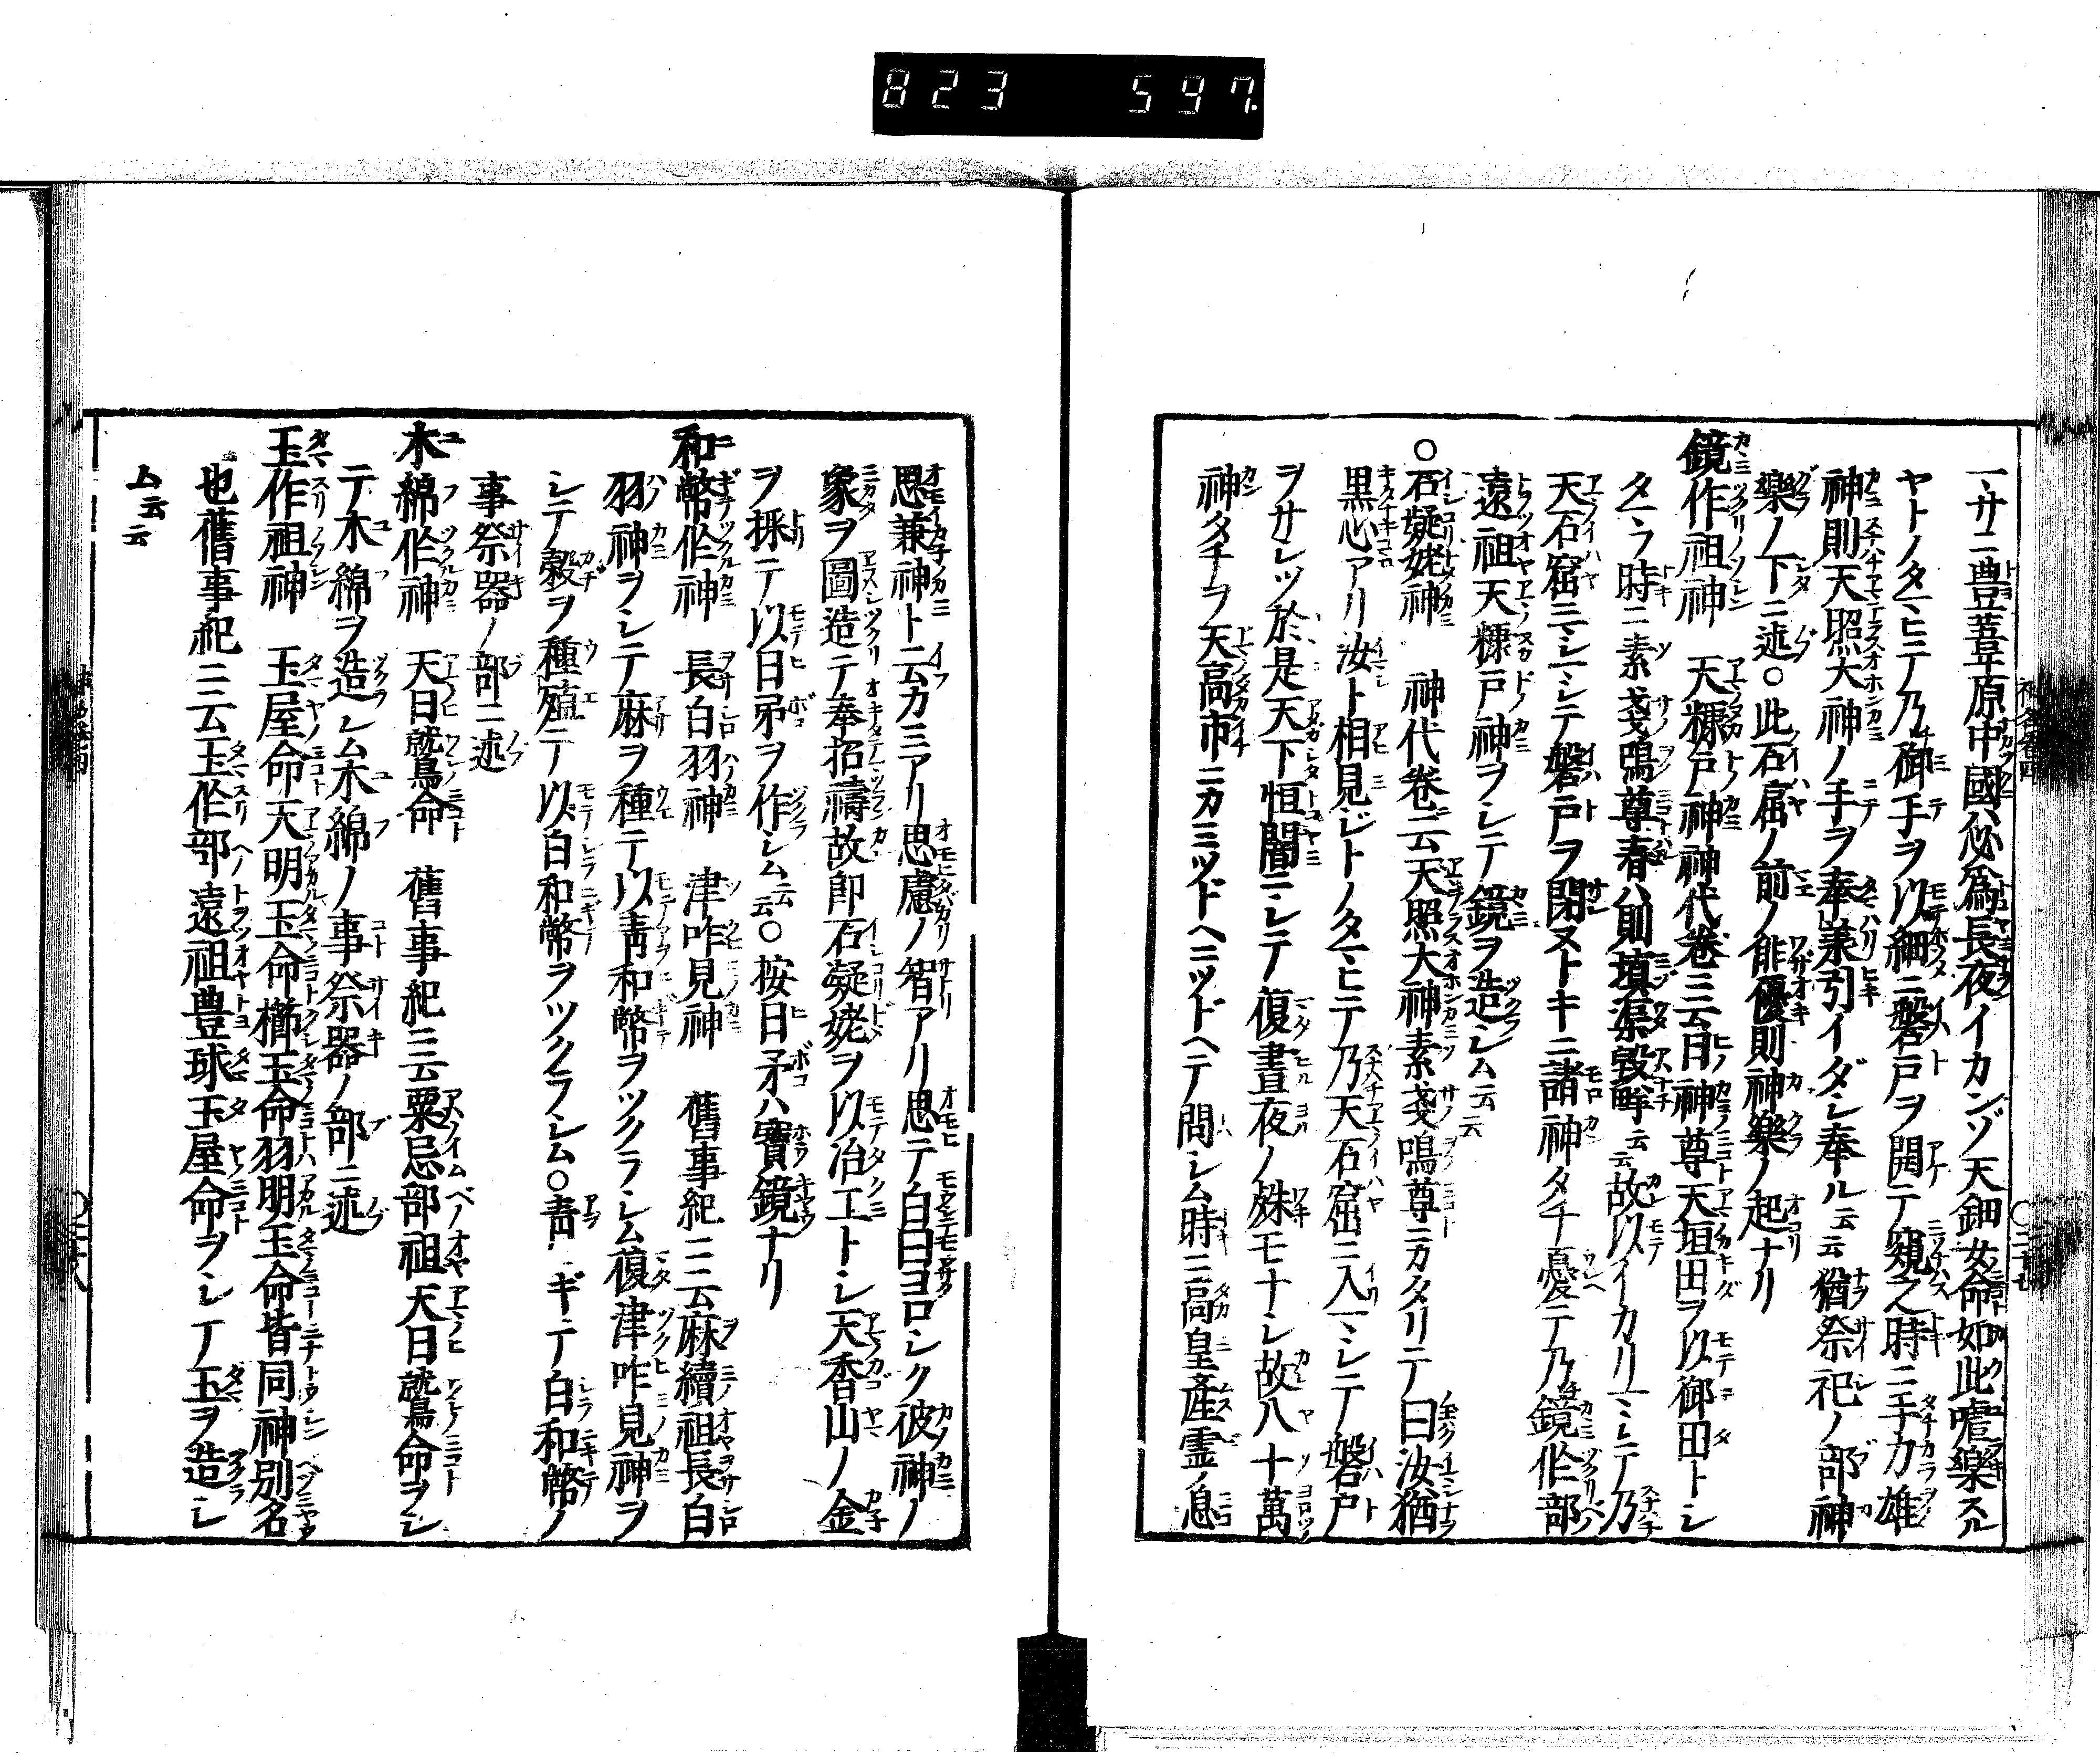 823 597.
一サニ豊葦原中國ハ必爲長夜イカンゾ天鈿女命如此嘘樂スル
ヤトノタマヒテ乃御手ヲ以細ニ磐戸ヲ開テ窺之時ニ手力雄
神則天照大神ノ手ヲ奉兼引イダシ奉ル云云猶祭祀ノ部神
樂ノ下ニ述○此石窟ノ前ノ俳優則神樂ノ起ナリ
鏡作祖神 天糠戸神神代巻ニ云日神尊天垣田ヲ以御田トシ
タマフ時ニ素戔嗚尊春ハ則填渠毀畔云云故以イカリマシテ乃
天石窟ニマシマシテ磐戸ヲ閉ヌトキニ諸神タチ憂テ乃鏡作部
遠祖天糠戸神ヲシテ鏡ヲ造シム云云
○石凝姥神 神代巻ニ云天照大神素戔嗚尊ニカタリテ曰汝猶
黒心アリ汝ト相見ジトノタマヒテ乃天石窟ニ入マシテ磐戸
ヲサシツ於是天下恒闇ニシテ復晝夜ノ殊モナシ故八十萬
神タチヲ天高市ニカミツドヘニツドヘテ問シム時ニ高皇産霊ノ息
思兼神ト云カミアリ思慮ノ智アリ思テ白曰ヨロシク彼神ノ
象ヲ圖造テ奉招禱故即石凝姥ヲ以冶工トシ天香山ノ金
ヲ採テ以日矛ヲ作シム云云○按日矛ハ寶鏡ナリ
和幣作神 長白羽神 津咋見神 舊事紀ニ云麻續祖長白
羽神ヲシテ麻ヲ種テ以青和幣ヲツクラシム復津咋見神ヲ
シテ穀ヲ種殖テ以白和幣ヲツクラシム○青ニギテ白和幣ノ
事祭器ノ部ニ述
木綿作神 天日鷲命 舊事紀ニ云粟忌部祖天日鷲命ヲシ
テ木綿ヲ造シム木綿ノ事祭器ノ部ニ述
玉作祖神 玉屋命天明玉命櫛玉命羽明玉命皆同神別名
也舊事紀ニ云玉作部遠祖豊球玉屋命ヲシテ玉ヲ造シ
ム云云